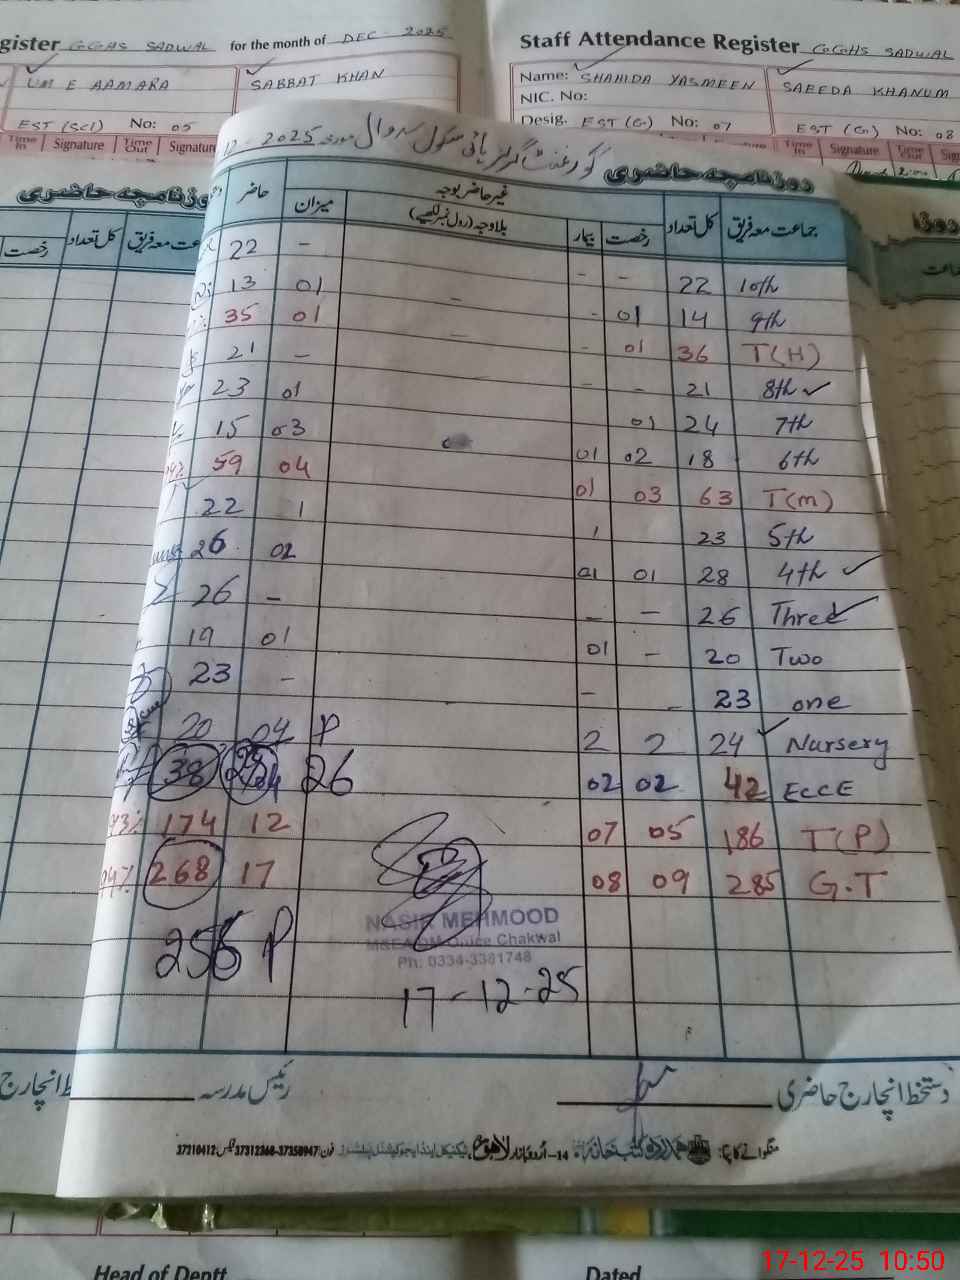 gister GGHS SADWAL for the month of DEC-2025
UM E AAMARA SABBAT KHAN
EST (SCI) No: 05
Time In Signature Time Out Signature
Staff Attendance Register GGHS SADWAL
Name: SHAHIDA YASMEEN SAEEDA KHANUM
NIC. No:
Desig. EST (G) No: 07 EST (G) No: 08
Time In Signature Time Out Signature Time In Sig
گورنمنٹ گرلز ہائی سکول سدوال مورخہ 2025
روزنامچہ حاضری
جماعت معہ فریق کل تعداد غیر حاضر بوجہ حاضر
رخصت بیمار بلاوجہ (رول نمبر لکھیے) میزان
10th 22 - - - 22
9th 14 01 - - 01 13
T(H) 36 01 - - 01 35
8th ✓ 21 - - - 21
7th 24 01 01 23
6th 18 02 01 03 15
T(m) 63 03 01 04 59
5th 23 1 1 22
4th ✓ 28 01 01 02 26
Three ✓ 26 - - - 26
Two 20 - 01 01 19
one 23 - - - 23
Nursery ✓ 24 2 2 P 04 20
ECCE 42 02 02 26 04 38
T(P) 186 05 07 12 174
G.T 285 09 08 17 268
256 P
NASIR MEHMOOD
M&EA DM Office Chakwal
Ph: 0334-3381748
17-12-25
دستخط انچارج حاضری رئیس مدرسہ
37210412 37312360-37350947
کل تعداد رخصت
Head of Deptt Dated
17-12-25 10:50